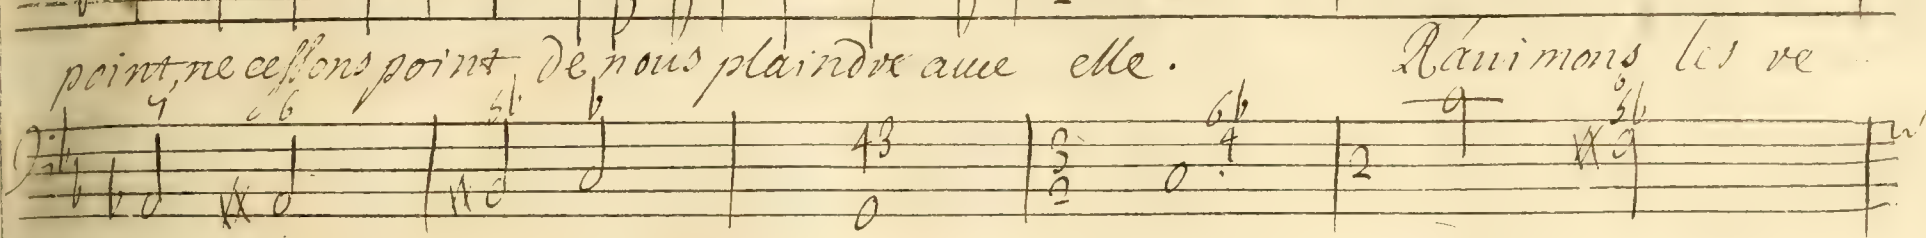 point, ne cessons point, de nous plaindre avec elle. Ranimons les re
7 6 5b b
43 3 6b 5b
3 4 2
2